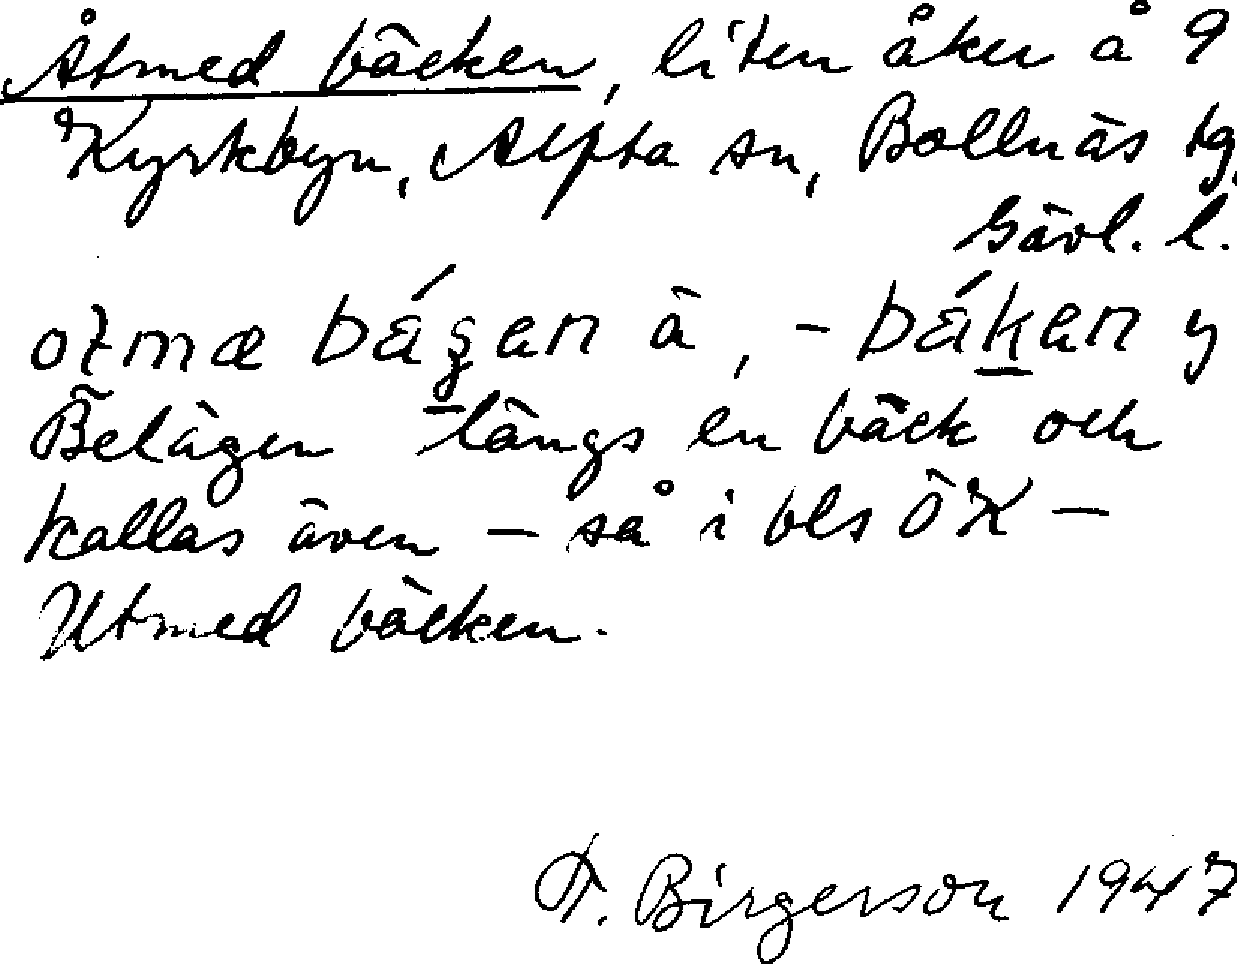 Åtmed bäcken, liten åker å 9
Kyrkbyn, Alfta sn, Bollnäs tg,
Gävl. l.
otmæ bágan ä, - bákan y
Belägen längs en bäck och
kallas även — så i bls ÖK —
Utmed bäcken.
F. Birgerson 1947